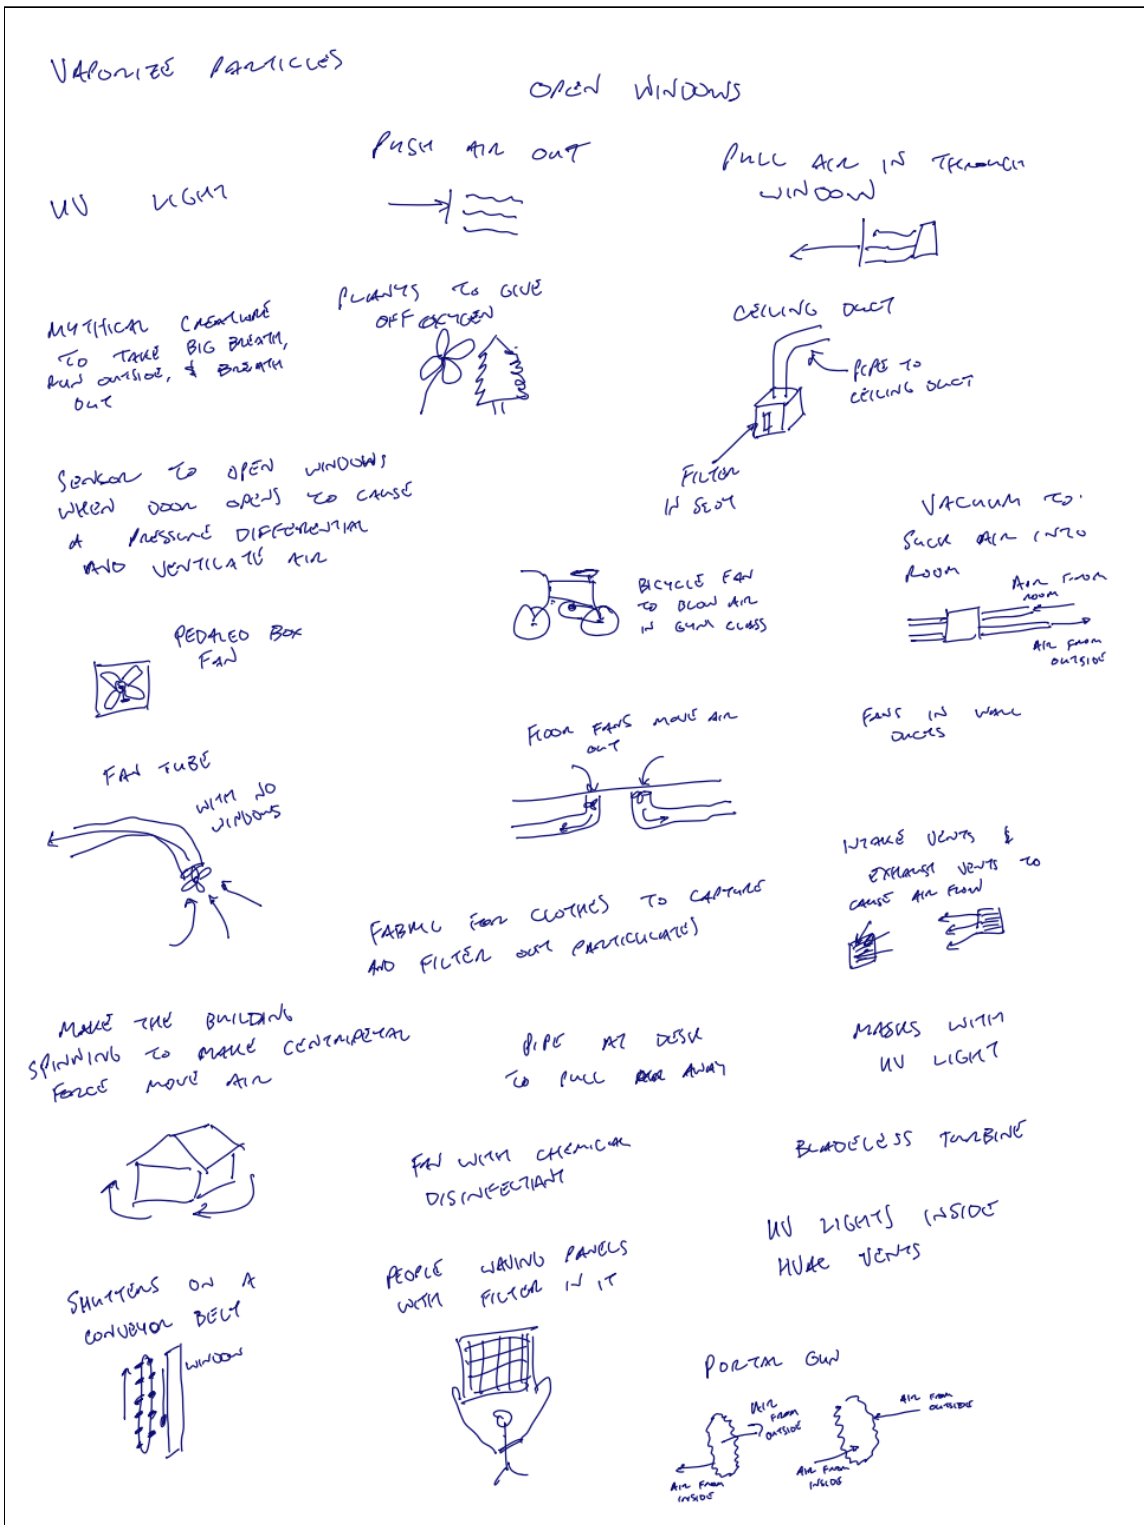 VAPORIZE PARTICLES
OPEN WINDOWS
PUSH AIR OUT
PULL AIR IN THROUGH
WINDOW
UV LIGHT
MYTHICAL CREATURE
TO TAKE BIG BREATH,
RUN OUTSIDE, & BREATH
OUT
PLANTS TO GIVE
OFF OXYGEN
CEILING DUCT
PIPE TO
CEILING DUCT
FILTER
IN SLOT
SENSOR TO OPEN WINDOWS
WHEN DOOR OPENS TO CAUSE
A PRESSURE DIFFERENTIAL
AND VENTILATE AIR
BICYCLE FAN
TO BLOW AIR
IN GYM CLASS
VACUUM TO
SUCK AIR INTO
ROOM
AIR FROM
ROOM
AIR FROM
OUTSIDE
PEDALED BOX
FAN
FAN TUBE
WITH NO
WINDOWS
FLOOR FANS MOVE AIR
OUT
FANS IN WALL
DUCTS
INTAKE VENTS &
EXHAUST VENTS TO
CAUSE AIR FLOW
FABRIC FOR CLOTHES TO CAPTURE
AND FILTER OUT PARTICULATES
MAKE THE BUILDING
SPINNING TO MAKE CENTRIPETAL
FORCE MOVE AIR
PIPE AT DESK
TO PULL AIR AWAY
MASKS WITH
UV LIGHT
FAN WITH CHEMICAL
DISINFECTIANT
BLADELESS TURBINE
UV LIGHTS INSIDE
HVAC VENTS
SHUTTERS ON A
CONVEYOR BELT
WINDOW
PEOPLE WAVING PANELS
WITH FILTER IN IT
PORTAL GUN
AIR
FROM
OUTSIDE
AIR FROM
INSIDE
AIR FROM
OUTSIDE
AIR FROM
INSIDE